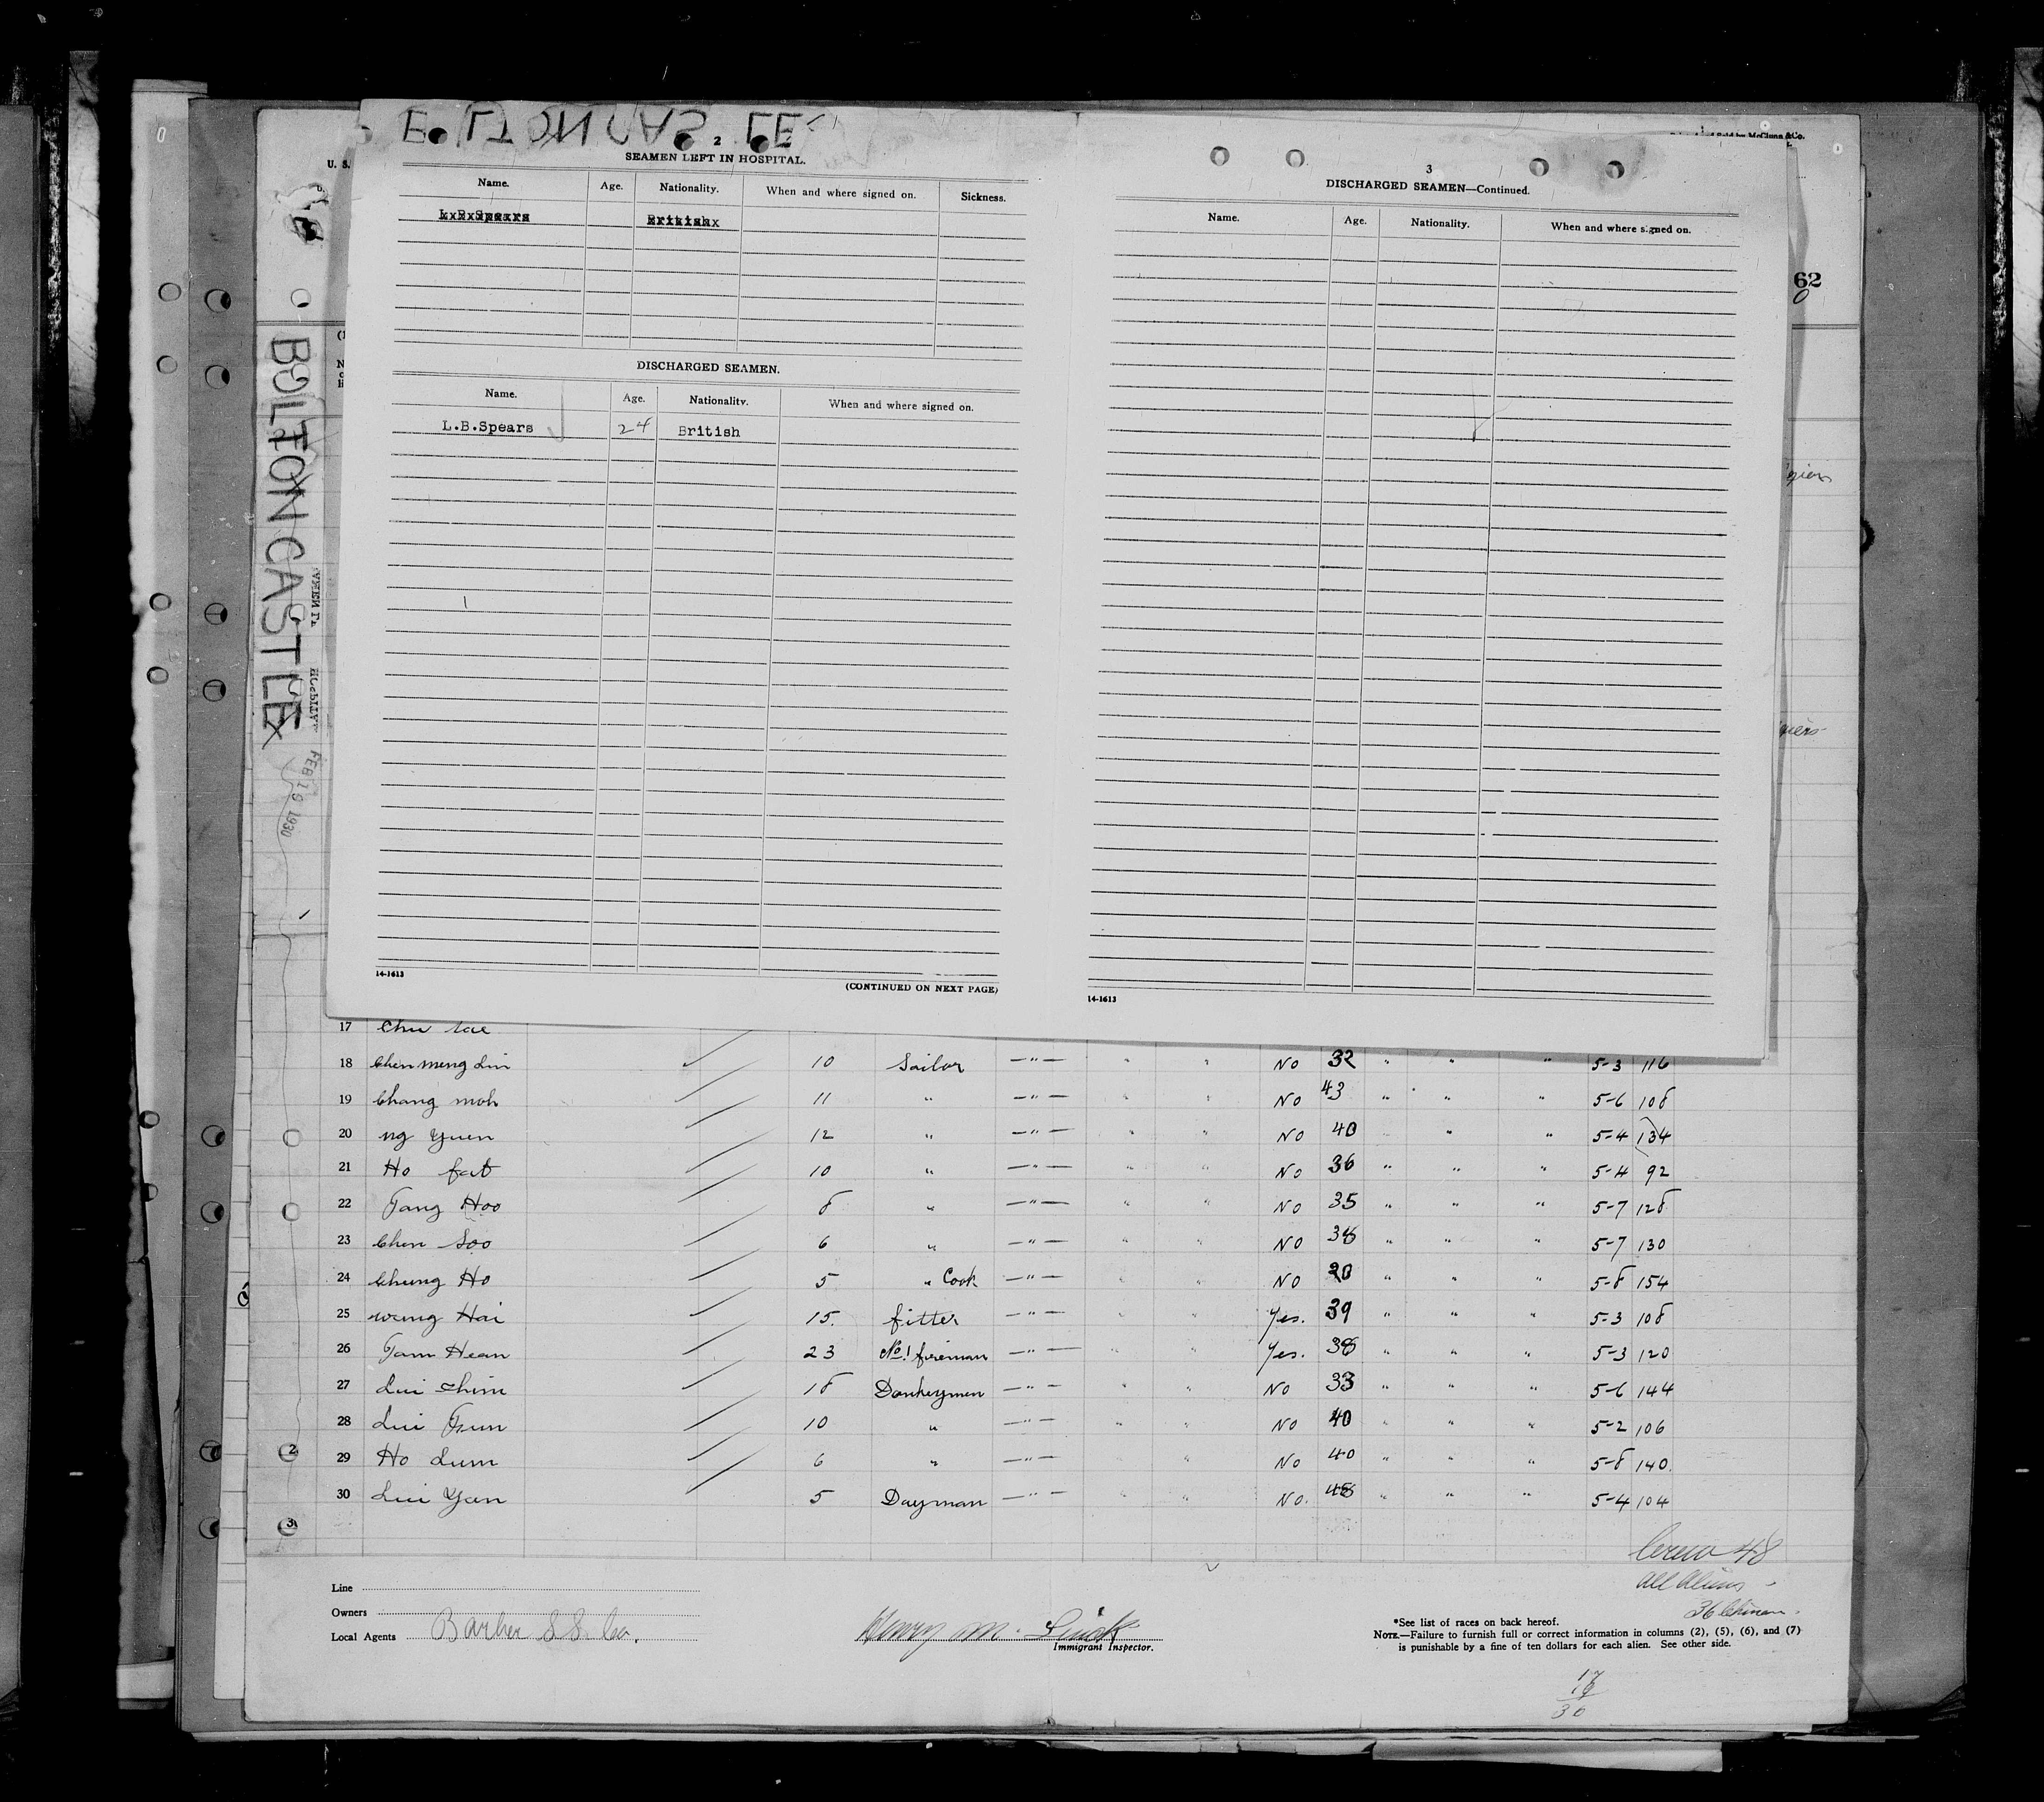 BOLTON CASTLE
2
SEAMEN LEFT IN HOSPITAL.
Name. Age. Nationality. When and where signed on. Sickness.
L.B.Spears British
DISCHARGED SEAMEN.
Name. Age. Nationality. When and where signed on.
L.B.Spears 24 British
14-1613
(CONTINUED ON NEXT PAGE)
3
DISCHARGED SEAMEN—Continued.
Name. Age. Nationality. When and where signed on.
14-1613
U. S.
62
BOLTON CASTLE
FEB 19 1930
17 Chu
18 Chen Meng Lin 10 Sailor —"— " " No 32 " " " 5-3 116
19 Chang Moh 11 " —"— " " No 43 " " " 5-6 108
20 Ng Yuen 12 " —"— " " No 40 " " 5-4 134
21 Ho Fat 10 " —"— " " No 36 " " " 5-4 92
22 Tang Hoo 8 " —"— " " No 35 " " " 5-7 128
23 Chen Soo 6 " —"— " " No 38 " " " 5-7 130
24 Chung Ho 5 " Cook —"— " " No 20 " " " 5-8 154
25 Wung Hai 15. fitter —"— " " Yes. 39 " " " 5-3 108
26 Tam Hean 23 No.1 fireman —"— " " Yes. 38 " " " 5-3 120
27 Lui Shim 18 Donkeymen —"— " " No 33 " " " 5-6 144
28 Lui 10 " —"— " " No 40 " " " 5-2 106
29 Ho Lum 6 " —"— " " No 40 " " " 5-8 140.
30 Lui Yan 5 Dayman —"— " " No. 48 " " " 5-4 104
Line
Owners
Local Agents Barber S.S. Co.
Henry M.
Immigrant Inspector.
Crew 48
all aliens
36 Chinese.
*See list of races on back hereof.
NOTE.—Failure to furnish full or correct information in columns (2), (5), (6), and (7)
is punishable by a fine of ten dollars for each alien. See other side.